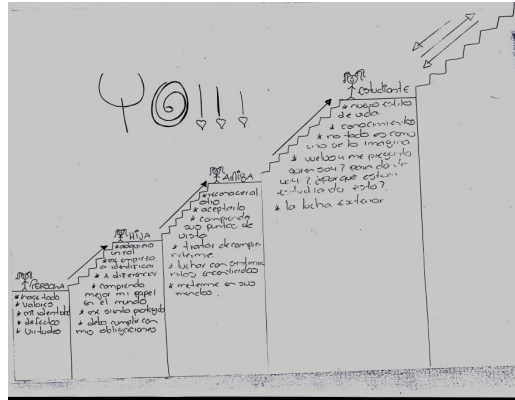 YO!!!
PERSONA
* valores
* mi identidad
* defectos
* virtudes
HIJA
* adquiero
un rol
* empiezo
a identificar
a diferenciar
* comprendo
mejor mi papel
en el mundo
* me siento protegida
* debo cumplir con
mis obligaciones
AMIGA
* reconocer al
otro
* aceptarlo
* comprendo
sus puntos de
vista
* tratar de compre-
* luchar con sentimie
ntos encontrados
* meterme en sus
mundos.
Estudiante
* nuevo estilo
de vida
* conocimientos
* no todo es como
uno se lo imagina
* vuelvo y me pregunto
quien soy? para donde
voy? ¿porque estoy
estudiando esto?
* la lucha exterior